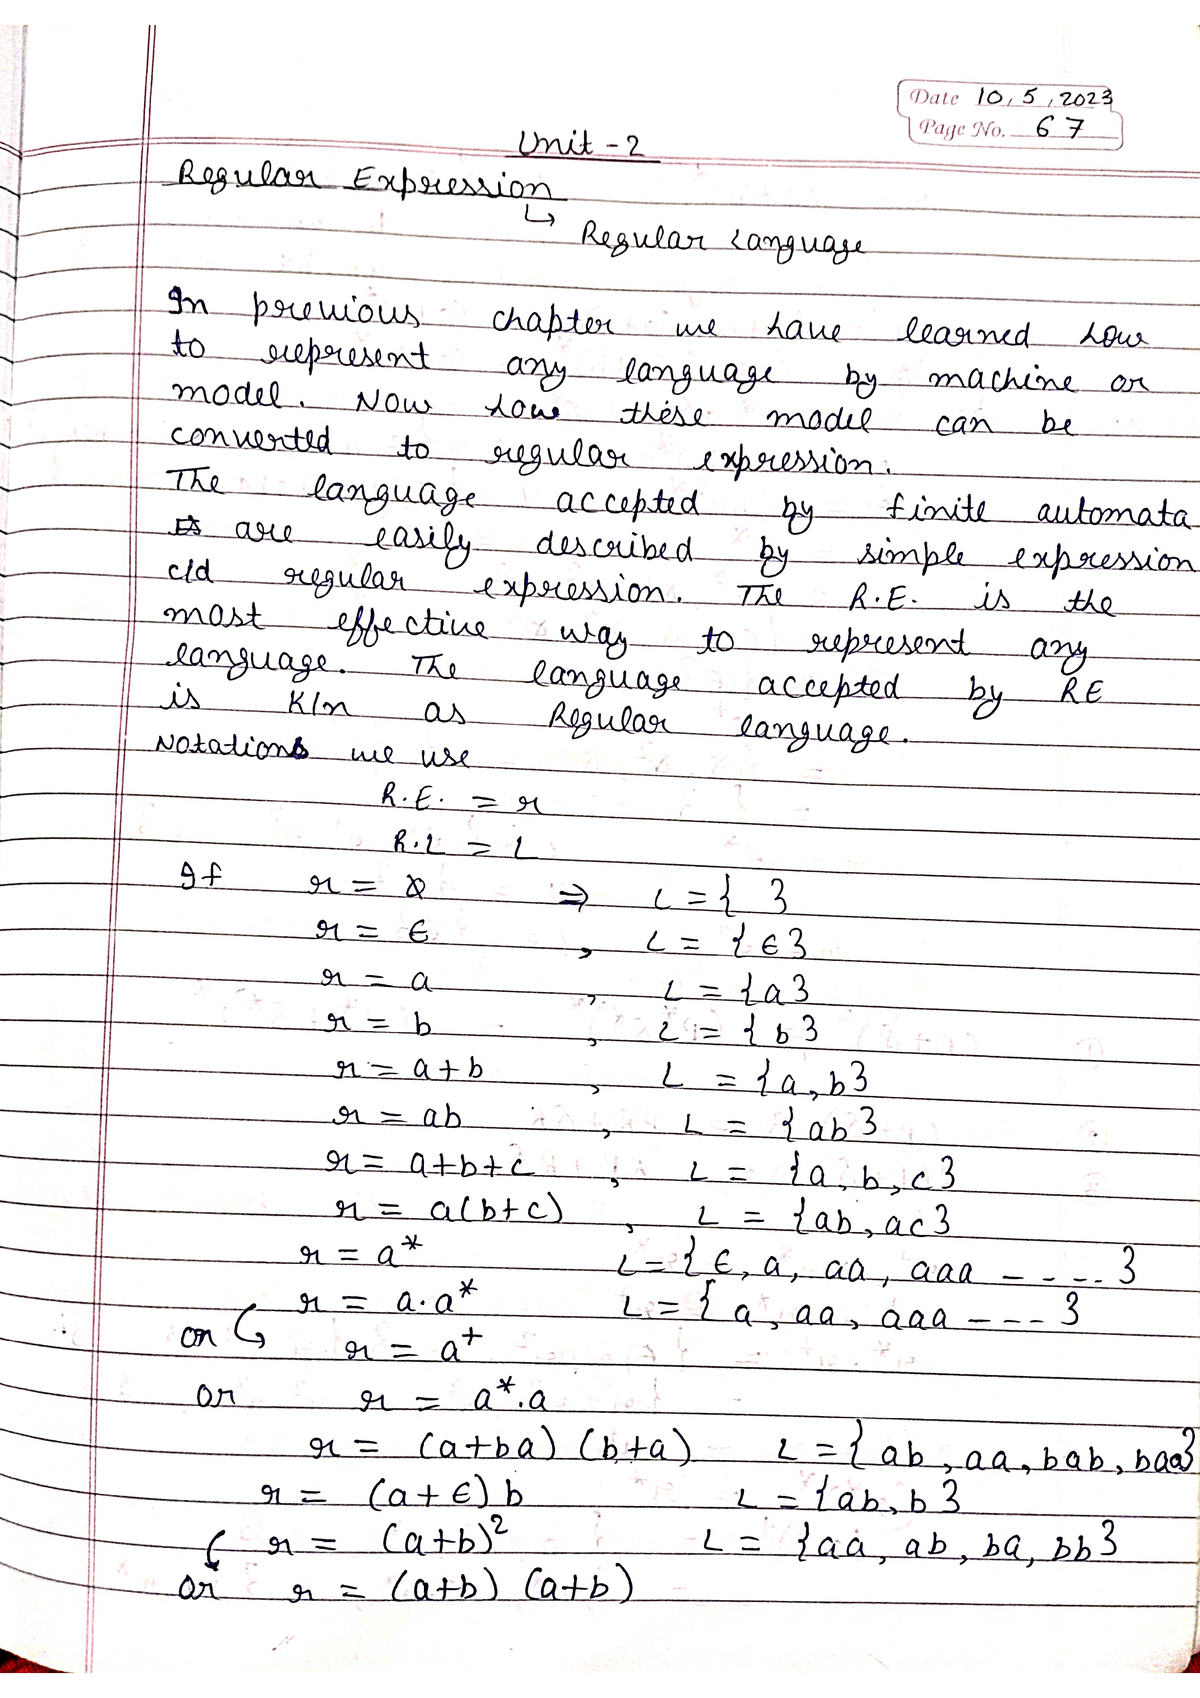 Date 10, 5, 2023
Page No. 67
Unit - 2
Regular Expression
↳ Regular Language
In previous chapter we have learned how
to represent any language by machine or
model. Now how these model can be
converted to regular expression.
The language accepted by finite automata
are easily described by simple expression
c/d regular expression. The R.E. is the
most effective way to represent any
language. The language accepted by RE
is K/n as Regular language.
Notations we use
R.E. = r
R.L = L
If r = ∅ ⇒ L = { }
r = ε , L = {ε}
r = a , L = {a}
r = b , L = {b}
r = a+b , L = {a, b}
r = ab , L = {ab}
r = a+b+c , L = {a, b, c}
r = a(b+c) , L = {ab, ac}
r = a* L = {ε, a, aa, aaa ----}
r = a.a* L = {a, aa, aaa ---}
or ↳ r = a⁺
or r = a*.a
r = (a+ba) (b+a) L = {ab, aa, bab, baa}
r = (a+ε) b L = {ab, b}
r = (a+b)² L = {aa, ab, ba, bb}
or r = (a+b) (a+b)